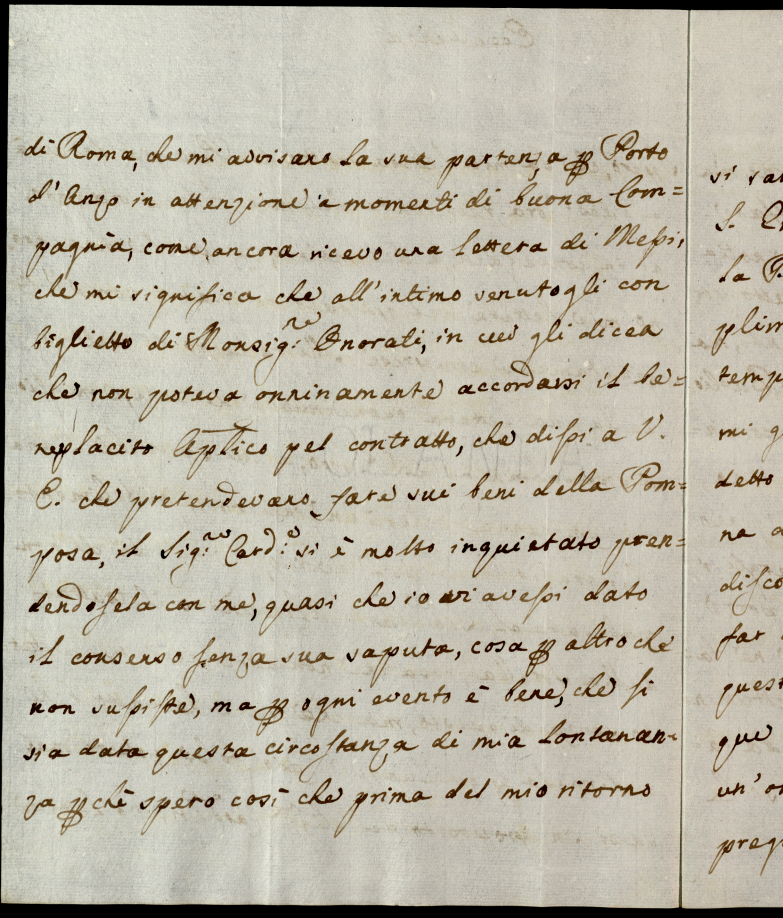 di Roma, che mi avvisano la sua partenza p Porto
d'Anzo in attenzione a momenti di buona Com=
pagnia, come ancora ricevo una lettera di Messi,
che mi significa che all'intimo venutogli con
biglietto di Monsig.re Onorati, in cui gli dicea
che non poteva onninamente accordarsi il be=
neplacito Aplico pel contratto, che dissi a V.
E. che pretendevano fare sui beni della Pom=
posa, il Sig.re Card.e si è molto inquietato pren=
dendosela con me, quasi che io vi avessi dato
il consenso senza sua saputa, cosa p altro che
non sussiste, ma p ogni evento è bene, che si
sia data questa circostanza di mia lontanan=
za pchè spero così che prima del mio ritorno
la
plim
temp
mi
detto
na
disco
far
quest
que
un'
preg